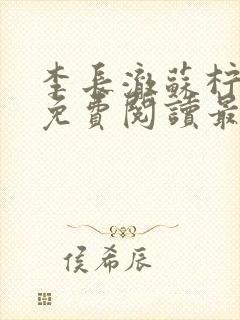 李長澈蘇柠
免費閱讀最
侯希辰